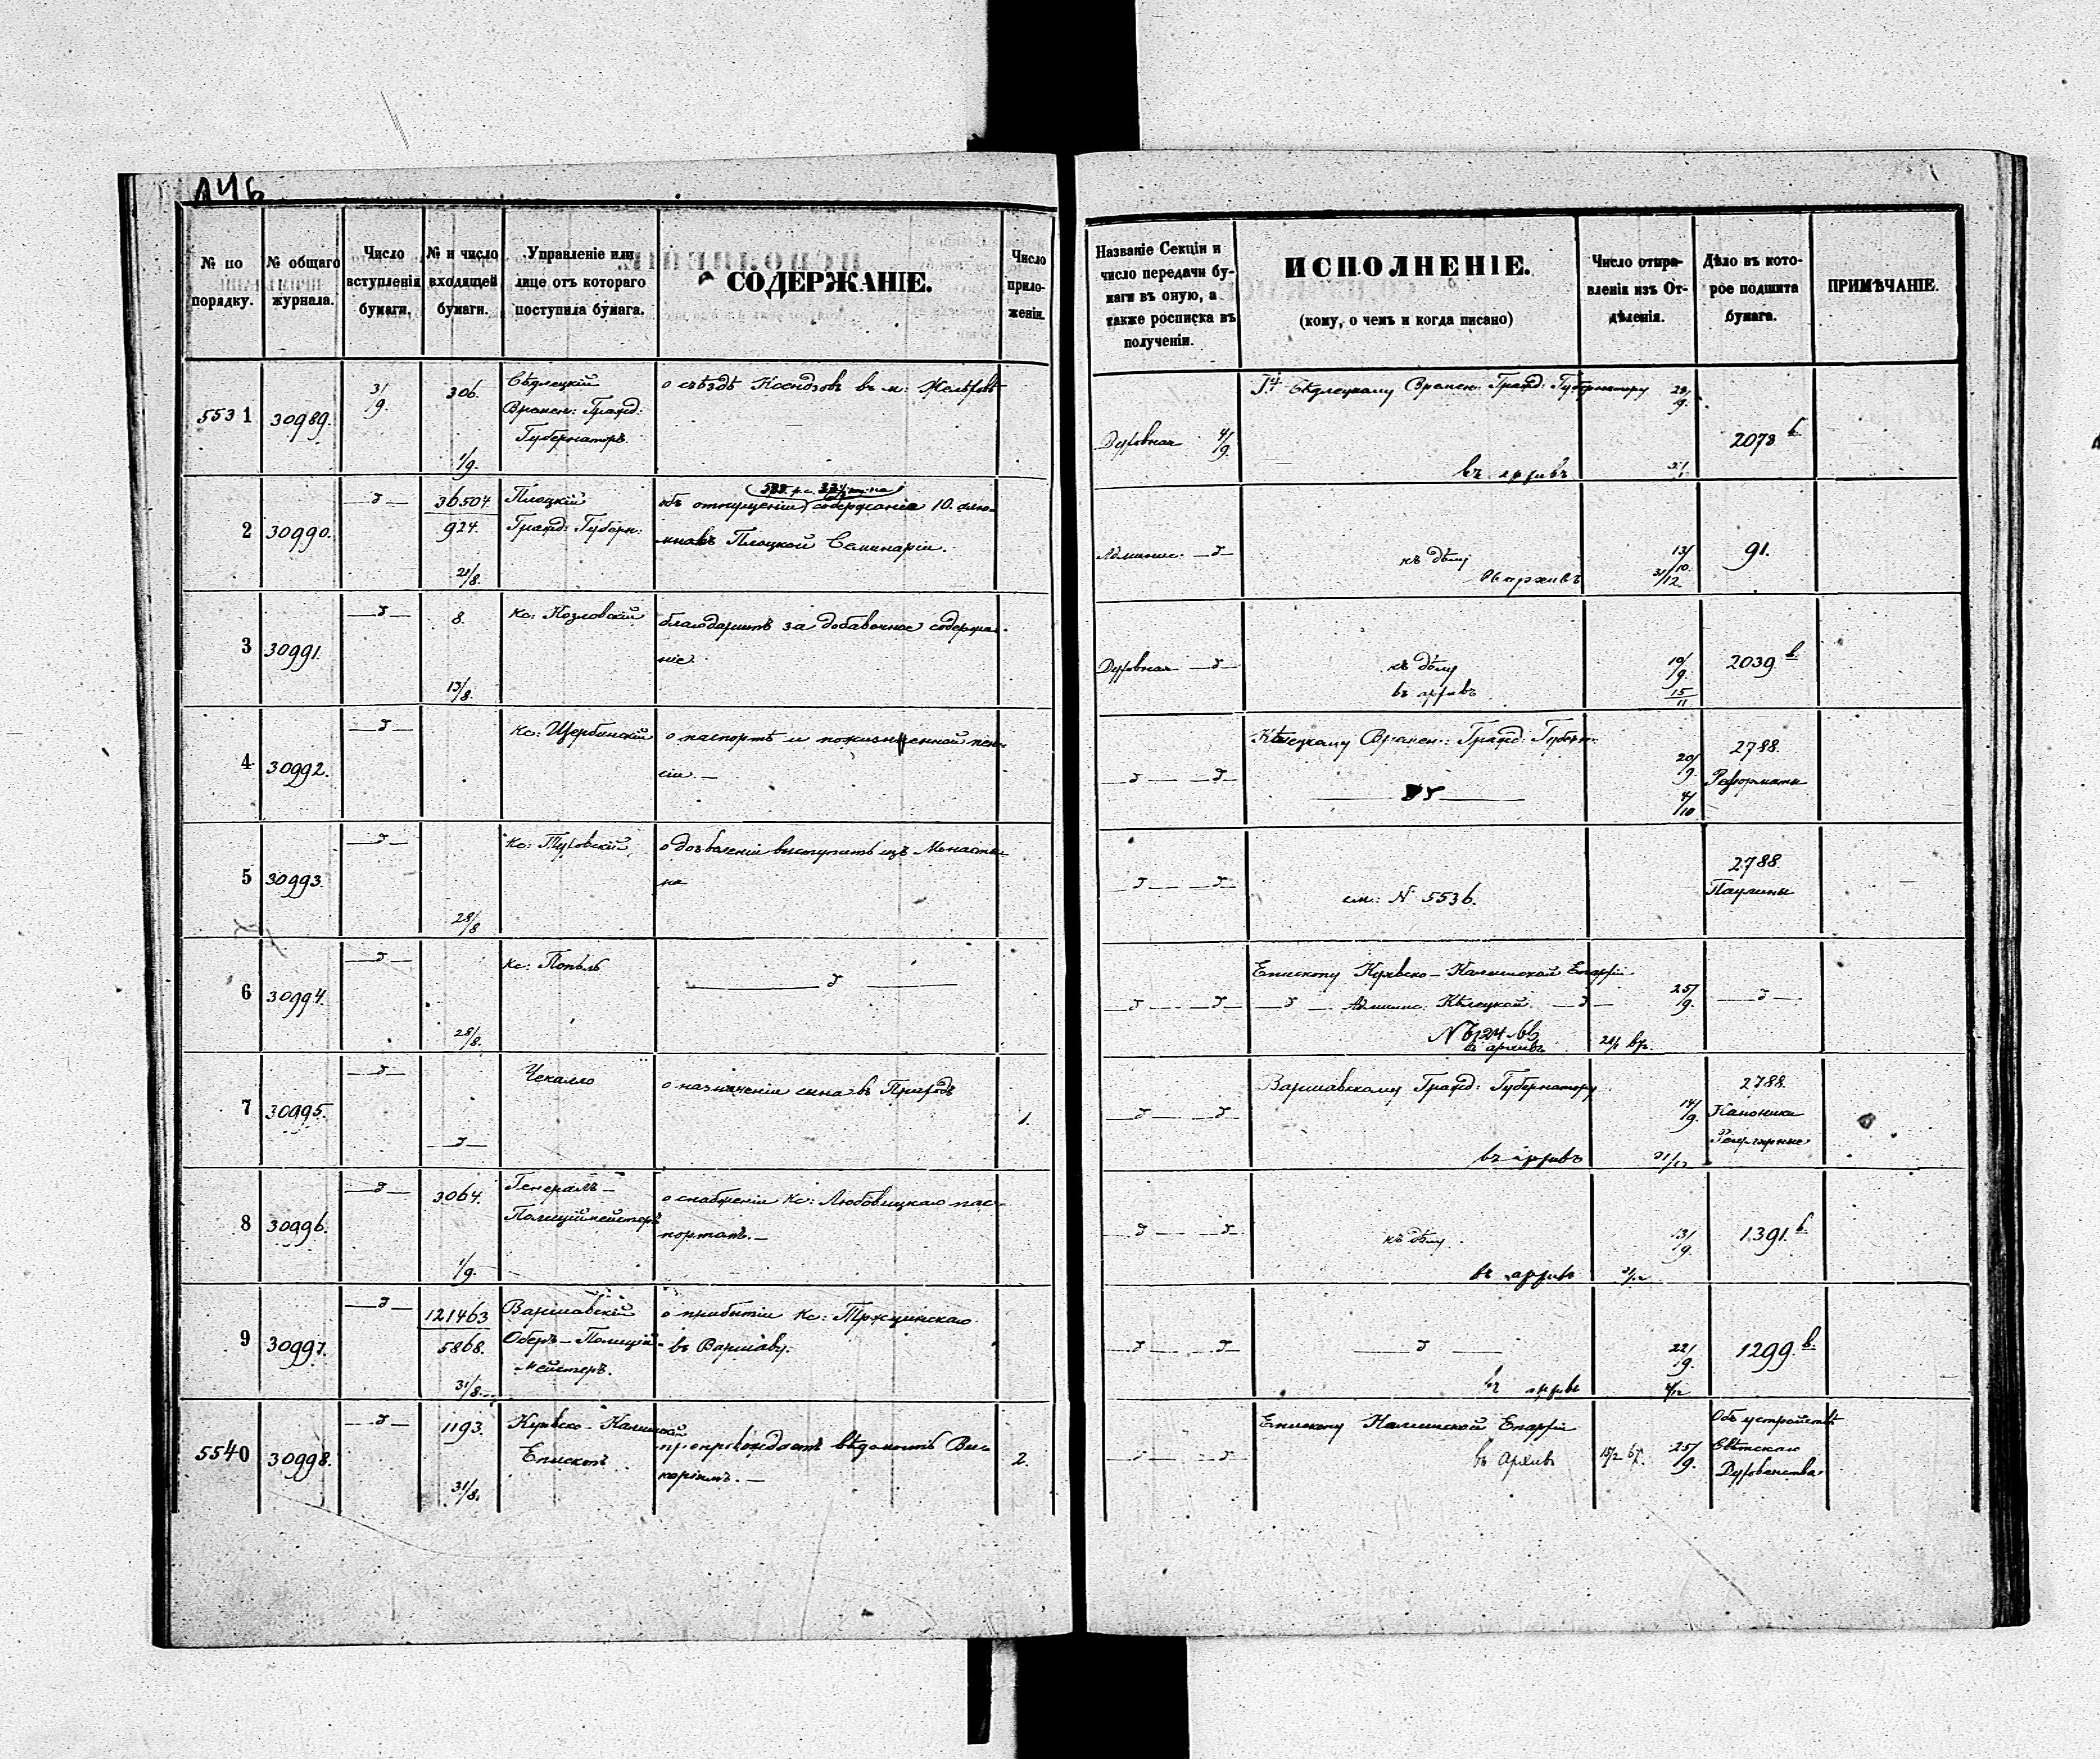 № по порядку.
№ общаго журнала.
Число вступленія бумаги.
№ и число входящей бумаги.
Управленіе или лице отъ котораго поступила бумага.
СОДЕРЖАНІЕ.
Число приложеній.
Названіе Секціи и число передачи бумаги въ оную, а также росписка въ полученіи.
ИСПОЛНЕНІЕ.
(кому, о чемъ и когда писано)
Число отправленія изъ Отдѣленія.
Дѣло въ которое подшита бумага.
ПРИМѢЧАНІЕ.
5531 30989. 3/9. 306. 1/9.
Сѣдлецкій
Времен: Гражд:
Губернаторъ.
о съѣздѣ Ксендзовъ въ м:
Духовная 4/9.
Сѣдлецкому Времен: Гражд: Губернатору
въ архивъ
2078 в
2 30990. —д— 36504. 924. 21/8.
Плоцкій
Гражд: Губерн:
объ отпущеніи содержанія 10. алю-
мновъ Плоцкой Семинаріи.
Админис: —д—
къ дѣлу 13/10.
въ архивъ 31/12
91.
3 30991. —д— 8. 13/8.
Кс: Козловскій
благодаритъ за добавочное содержа-
ніе.
Духовная —д—
къ дѣлу 19/9.
въ архивъ 15/11
2039 в.
4 30992. —д—
Кс: Щербинскій
о паспортѣ и пожизненной пен-
сіи.—
—д— —д—
Кѣлецкому Времен: Гражд: Губерн:
20/9.
4/10
2788.
Реформаты
5 30993. —д— 28/8
о дозволеніи выступить изъ Монасты-
—д— —д—
см: № 5536.
2788
Паулины
6 30994. —д— 28/8.
Кс: Попѣль
—д—
—д— —д—
Епископу Куявско-Калишской Епархіи
—д— Админис: Кѣлецкой —д—
25/9.
въ архивъ
—д—
7 30995. —д— —д—
Чекалло
о назначеніи сына въ Приходъ
1.
—д— —д—
Варшавскому Гражд: Губернатору
14/9.
въ архивъ 31/12
2788.
Каноники
Регулярные
8 30996. —д— 3064. 1/9.
Генералъ-
Полиціймейстеръ
о снабженіи Кс: Любовицкаго пас-
портомъ.—
—д— —д—
къ дѣлу. 13/9.
въ архивъ
1391. в
9 30997. —д— 121463 5868. 31/8.
Варшавскій
Оберъ-Полицій-
мейстеръ.
о прибытіи Кс: Тржцинскаго
въ Варшаву.
—д— —д—
—д— 22/9.
въ архивъ
1299. в.
5540 30998. —д— 1193. 31/8.
Куявско-Калишскій
Епископъ
препровождаетъ вѣдомость Ви-
каріямъ.—
2.
—д— —д—
Епископу Калишской Епархіи
25/9.
въ Архивъ
Объ устройствѣ
Свѣтскаго
Духовенства.